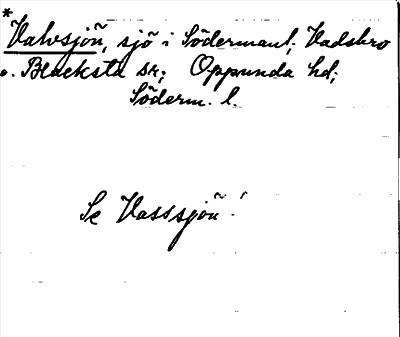 *
Valvsjön, sjö i Södermanl; Vadsbro
o. Blacksta sr; Oppunda hd;
Söderm. l.
Se Vasssjön!